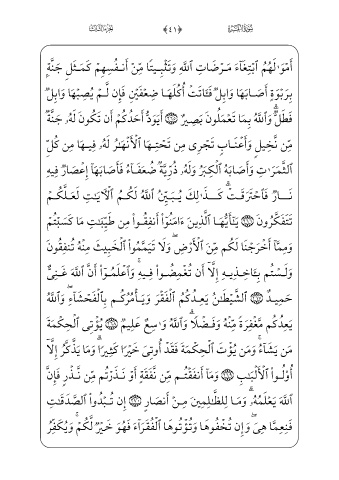 سُورَةُ البَقَرَةِ ﴿٤١﴾ الجُزْءُ الثَّالِثُ
أَمْوَٰلَهُمُ ٱبْتِغَآءَ مَرْضَاتِ ٱللَّهِ وَتَثْبِيتًا مِّنْ أَنفُسِهِمْ كَمَثَلِ جَنَّةٍۭ
بِرَبْوَةٍ أَصَابَهَا وَابِلٌ فَـَٔاتَتْ أُكُلَهَا ضِعْفَيْنِ فَإِن لَّمْ يُصِبْهَا وَابِلٌ
فَطَلٌّ ۗ وَٱللَّهُ بِمَا تَعْمَلُونَ بَصِيرٌ أَيَوَدُّ أَحَدُكُمْ أَن تَكُونَ لَهُۥ جَنَّةٌ
مِّن نَّخِيلٍ وَأَعْنَابٍ تَجْرِى مِن تَحْتِهَا ٱلْأَنْهَـٰرُ لَهُۥ فِيهَا مِن كُلِّ
ٱلثَّمَرَٰتِ وَأَصَابَهُ ٱلْكِبَرُ وَلَهُۥ ذُرِّيَّةٌ ضُعَفَآءُ فَأَصَابَهَآ إِعْصَارٌ فِيهِ
نَارٌ فَٱحْتَرَقَتْ ۗ كَذَٰلِكَ يُبَيِّنُ ٱللَّهُ لَكُمُ ٱلْـَٔايَـٰتِ لَعَلَّكُمْ
تَتَفَكَّرُونَ يَـٰٓأَيُّهَا ٱلَّذِينَ ءَامَنُوٓا۟ أَنفِقُوا۟ مِن طَيِّبَـٰتِ مَا كَسَبْتُمْ
وَمِمَّآ أَخْرَجْنَا لَكُم مِّنَ ٱلْأَرْضِ ۖ وَلَا تَيَمَّمُوا۟ ٱلْخَبِيثَ مِنْهُ تُنفِقُونَ
وَلَسْتُم بِـَٔاخِذِيهِ إِلَّآ أَن تُغْمِضُوا۟ فِيهِ ۚ وَٱعْلَمُوٓا۟ أَنَّ ٱللَّهَ غَنِىٌّ
حَمِيدٌ ٱلشَّيْطَـٰنُ يَعِدُكُمُ ٱلْفَقْرَ وَيَأْمُرُكُم بِٱلْفَحْشَآءِ ۖ وَٱللَّهُ
يَعِدُكُم مَّغْفِرَةً مِّنْهُ وَفَضْلًا ۗ وَٱللَّهُ وَٰسِعٌ عَلِيمٌ يُؤْتِى ٱلْحِكْمَةَ
مَن يَشَآءُ ۚ وَمَن يُؤْتَ ٱلْحِكْمَةَ فَقَدْ أُوتِىَ خَيْرًا كَثِيرًا ۗ وَمَا يَذَّكَّرُ إِلَّآ
أُو۟لُوا۟ ٱلْأَلْبَـٰبِ وَمَآ أَنفَقْتُم مِّن نَّفَقَةٍ أَوْ نَذَرْتُم مِّن نَّذْرٍ فَإِنَّ
ٱللَّهَ يَعْلَمُهُۥ ۗ وَمَا لِلظَّـٰلِمِينَ مِنْ أَنصَارٍ إِن تُبْدُوا۟ ٱلصَّدَقَـٰتِ
فَنِعِمَّا هِىَ ۖ وَإِن تُخْفُوهَا وَتُؤْتُوهَا ٱلْفُقَرَآءَ فَهُوَ خَيْرٌ لَّكُمْ ۚ وَيُكَفِّرُ